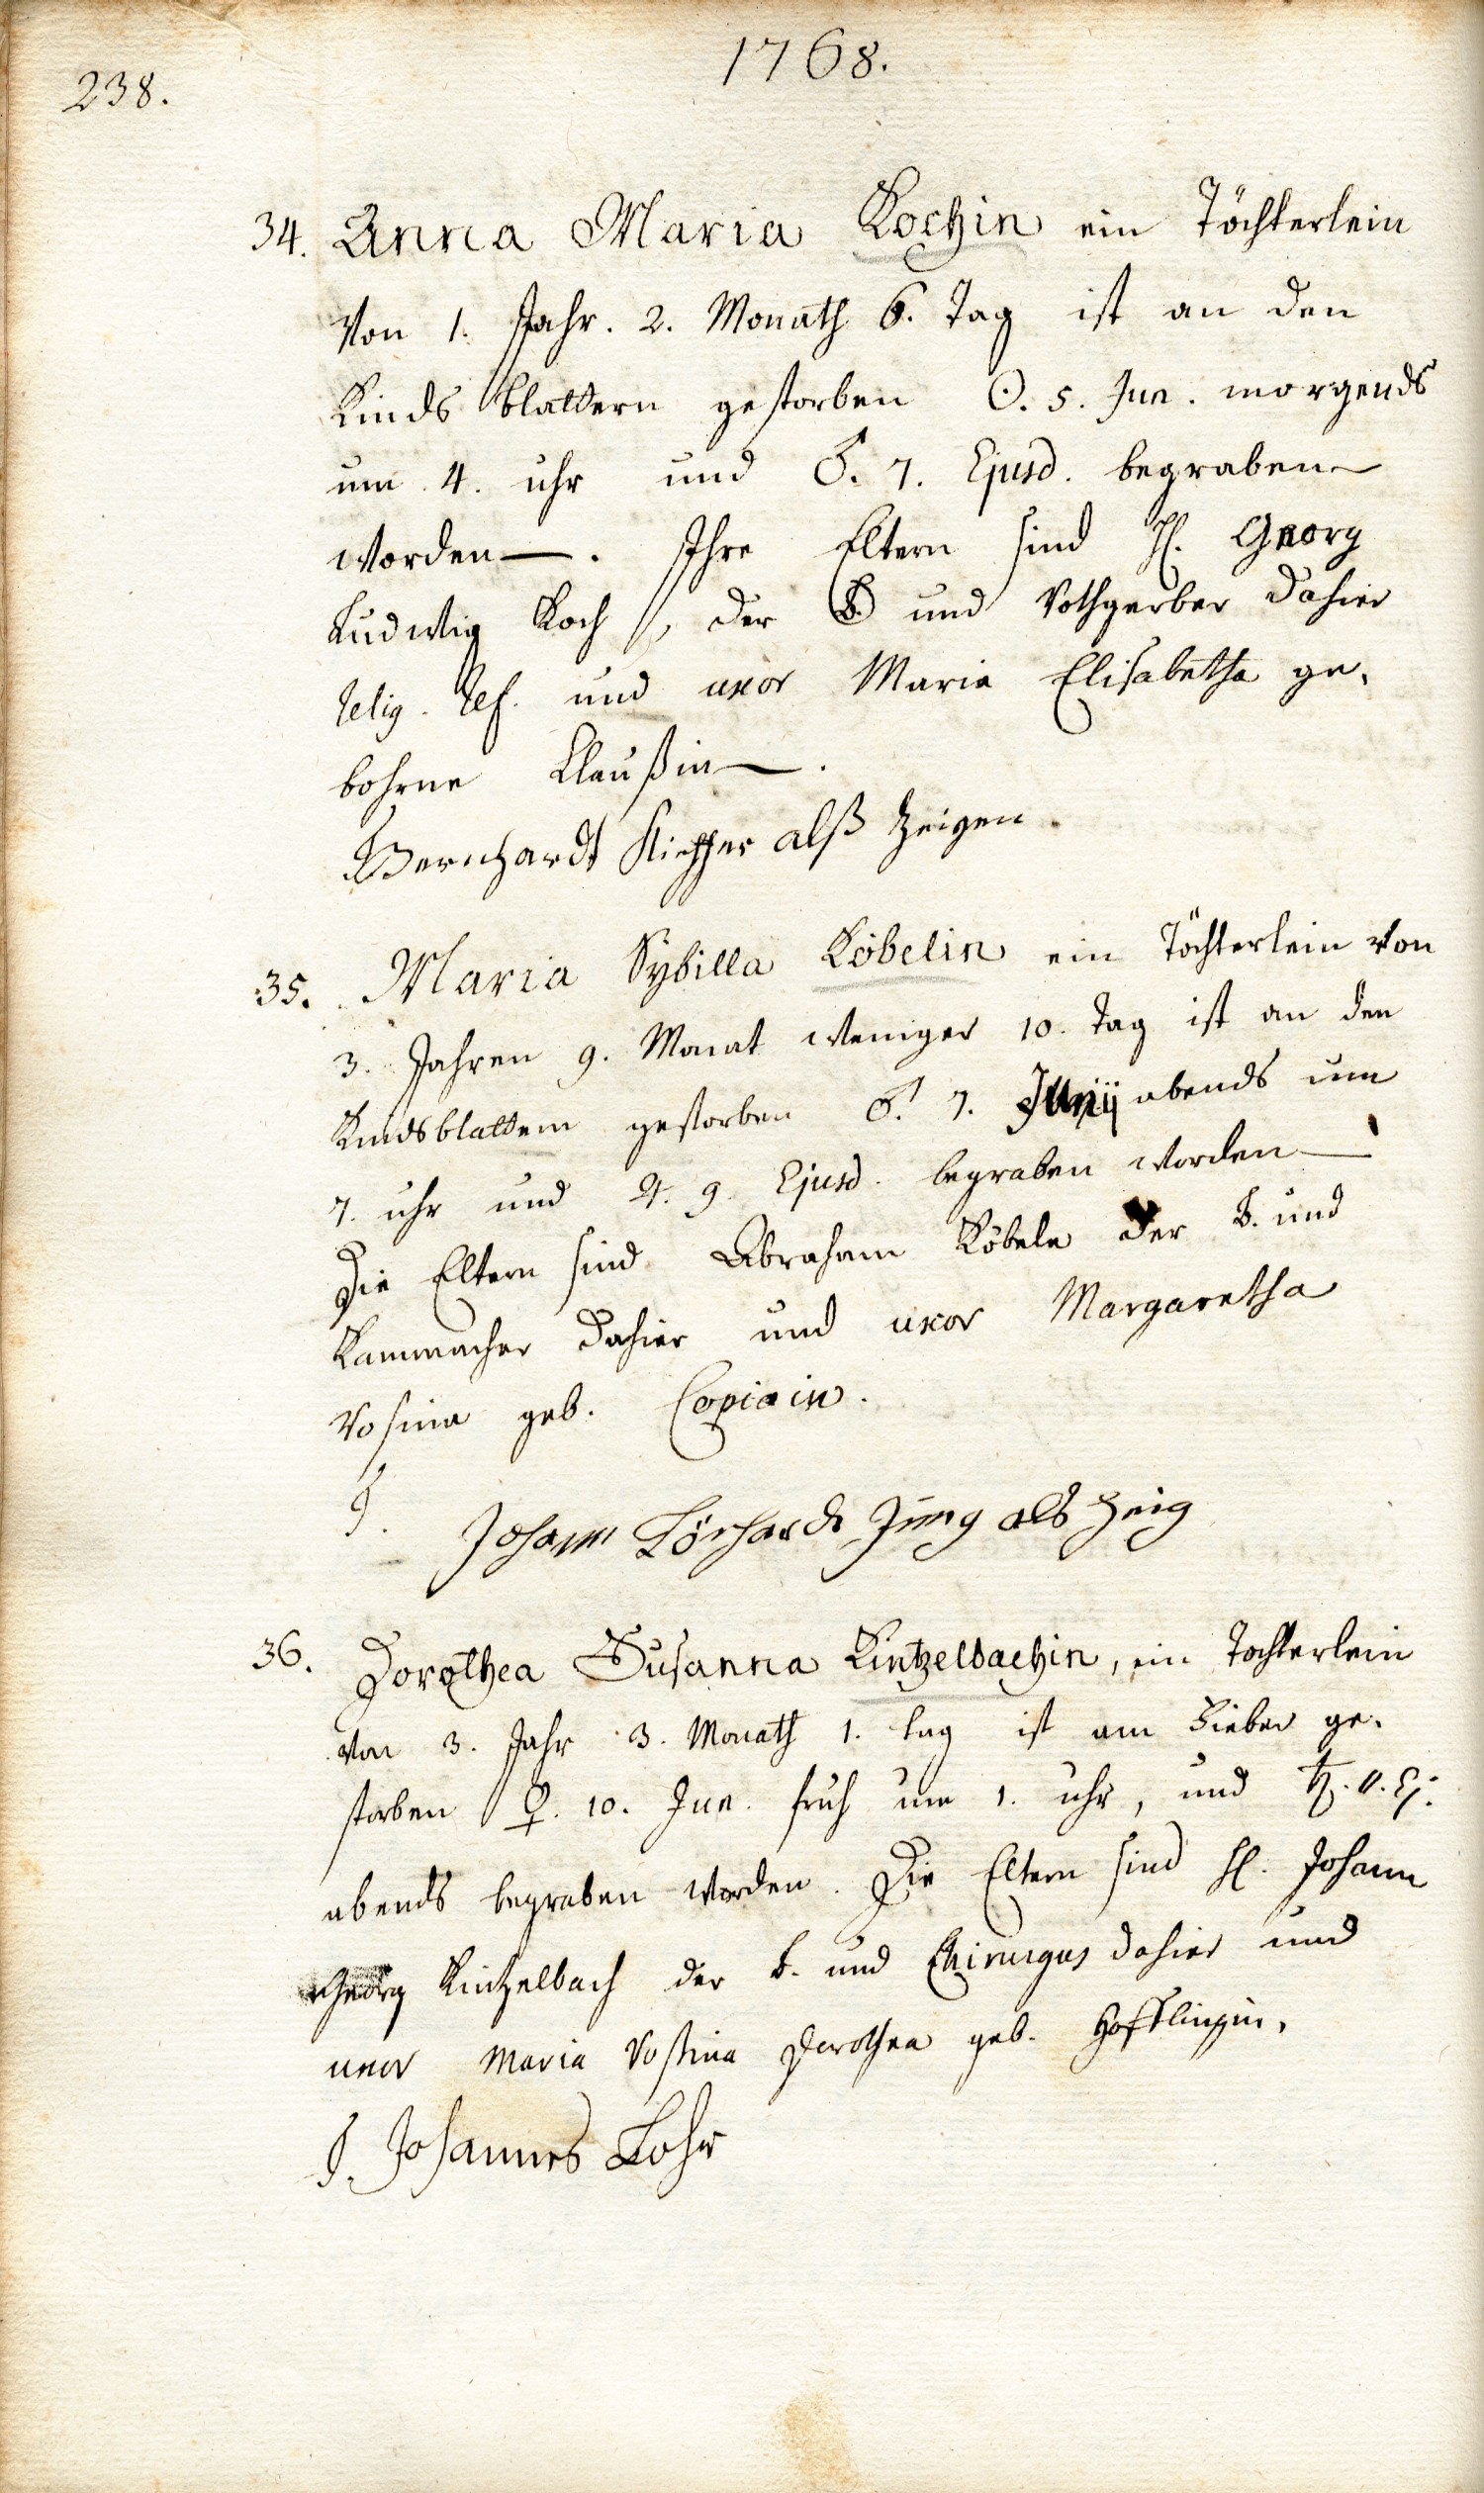 238.
1768.
34. Anna Maria Kochin ein Töchterlein
von 1. Jahr. 2. Monath 6. Tag ist an den
Kinds blattern gestorben ☉. 5. Jun. morgends
um 4. uhr und ♂. 7. Ejusd. begraben
worden —. Ihre Eltern sind H. Georg
Ludwig Koch, der B. und Rothgerber dahier
relig. ref. und uxor Maria Elisabetha ge-
bohrne Claußin —.
Bernhardt als Zeigen.
35. Maria Sybilla Köbelin ein Töchterlein von
3. Jahren 9. Monat weniger 10. Tag ist an den
Kindsblattern gestorben ♂. 7. Junij abends um
7. uhr und ♃. 9. Ejusd. begraben worden —
Die Eltern sind Abraham Köbele der B. und
Kammacher dahier und uxor Margaretha
Rosina geb.
T.
Johann Jung als Zeig
36. Dorothea Susanna Kintzelbachin, ein Tochterlein
von 3. Jahr 3. Monath 1. tag ist am Fieber ge-
storben ♀. 10. Jun. fruh um 1. uhr, und ♄. 11. Ej.
abends begraben worden. Die Eltern sind H. Johann
Georg Kintzelbach der B. und Chirurgus dahier und
uxor Maria Rosina Dorothea geb.
T. Johannes Lohr